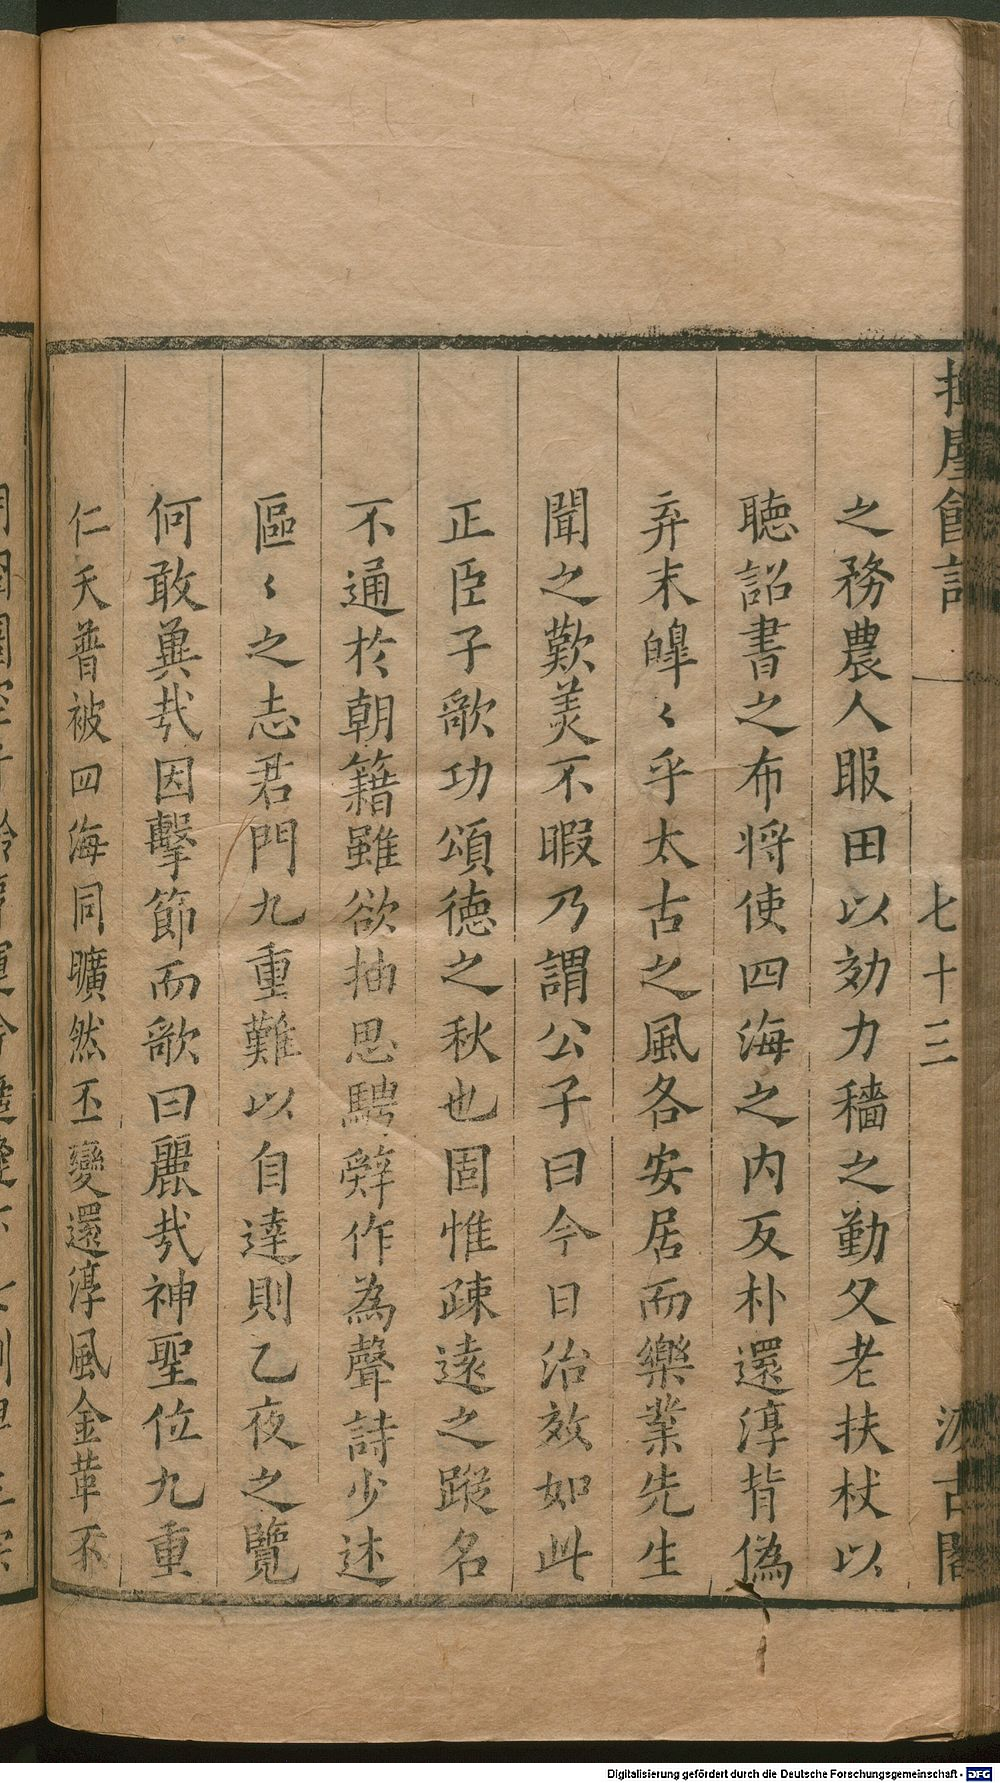 七十三
古閣
之務農人服田以効力穡之勤父老扶杖以
聴詔書之布将使四海之内反朴還淳背偽
弃末皥〻乎太古之風各安居而樂業先生
聞之歎美不暇乃謂公子曰今日治效如此
正臣子歌功頌德之秋也固惟疎遠之蹤名
不通於朝籍雖欲抽思騁辭作為聲詩少述
區〻之志君門九重難以自達則乙夜之覽
何敢冀㢤因擊節而歌曰麗㢤神聖位九重
仁天普被四海同曠然丕變還淳風金革不
Digitalisierung gefördert durch die Deutsche Forschungsgemeinschaft - DFG